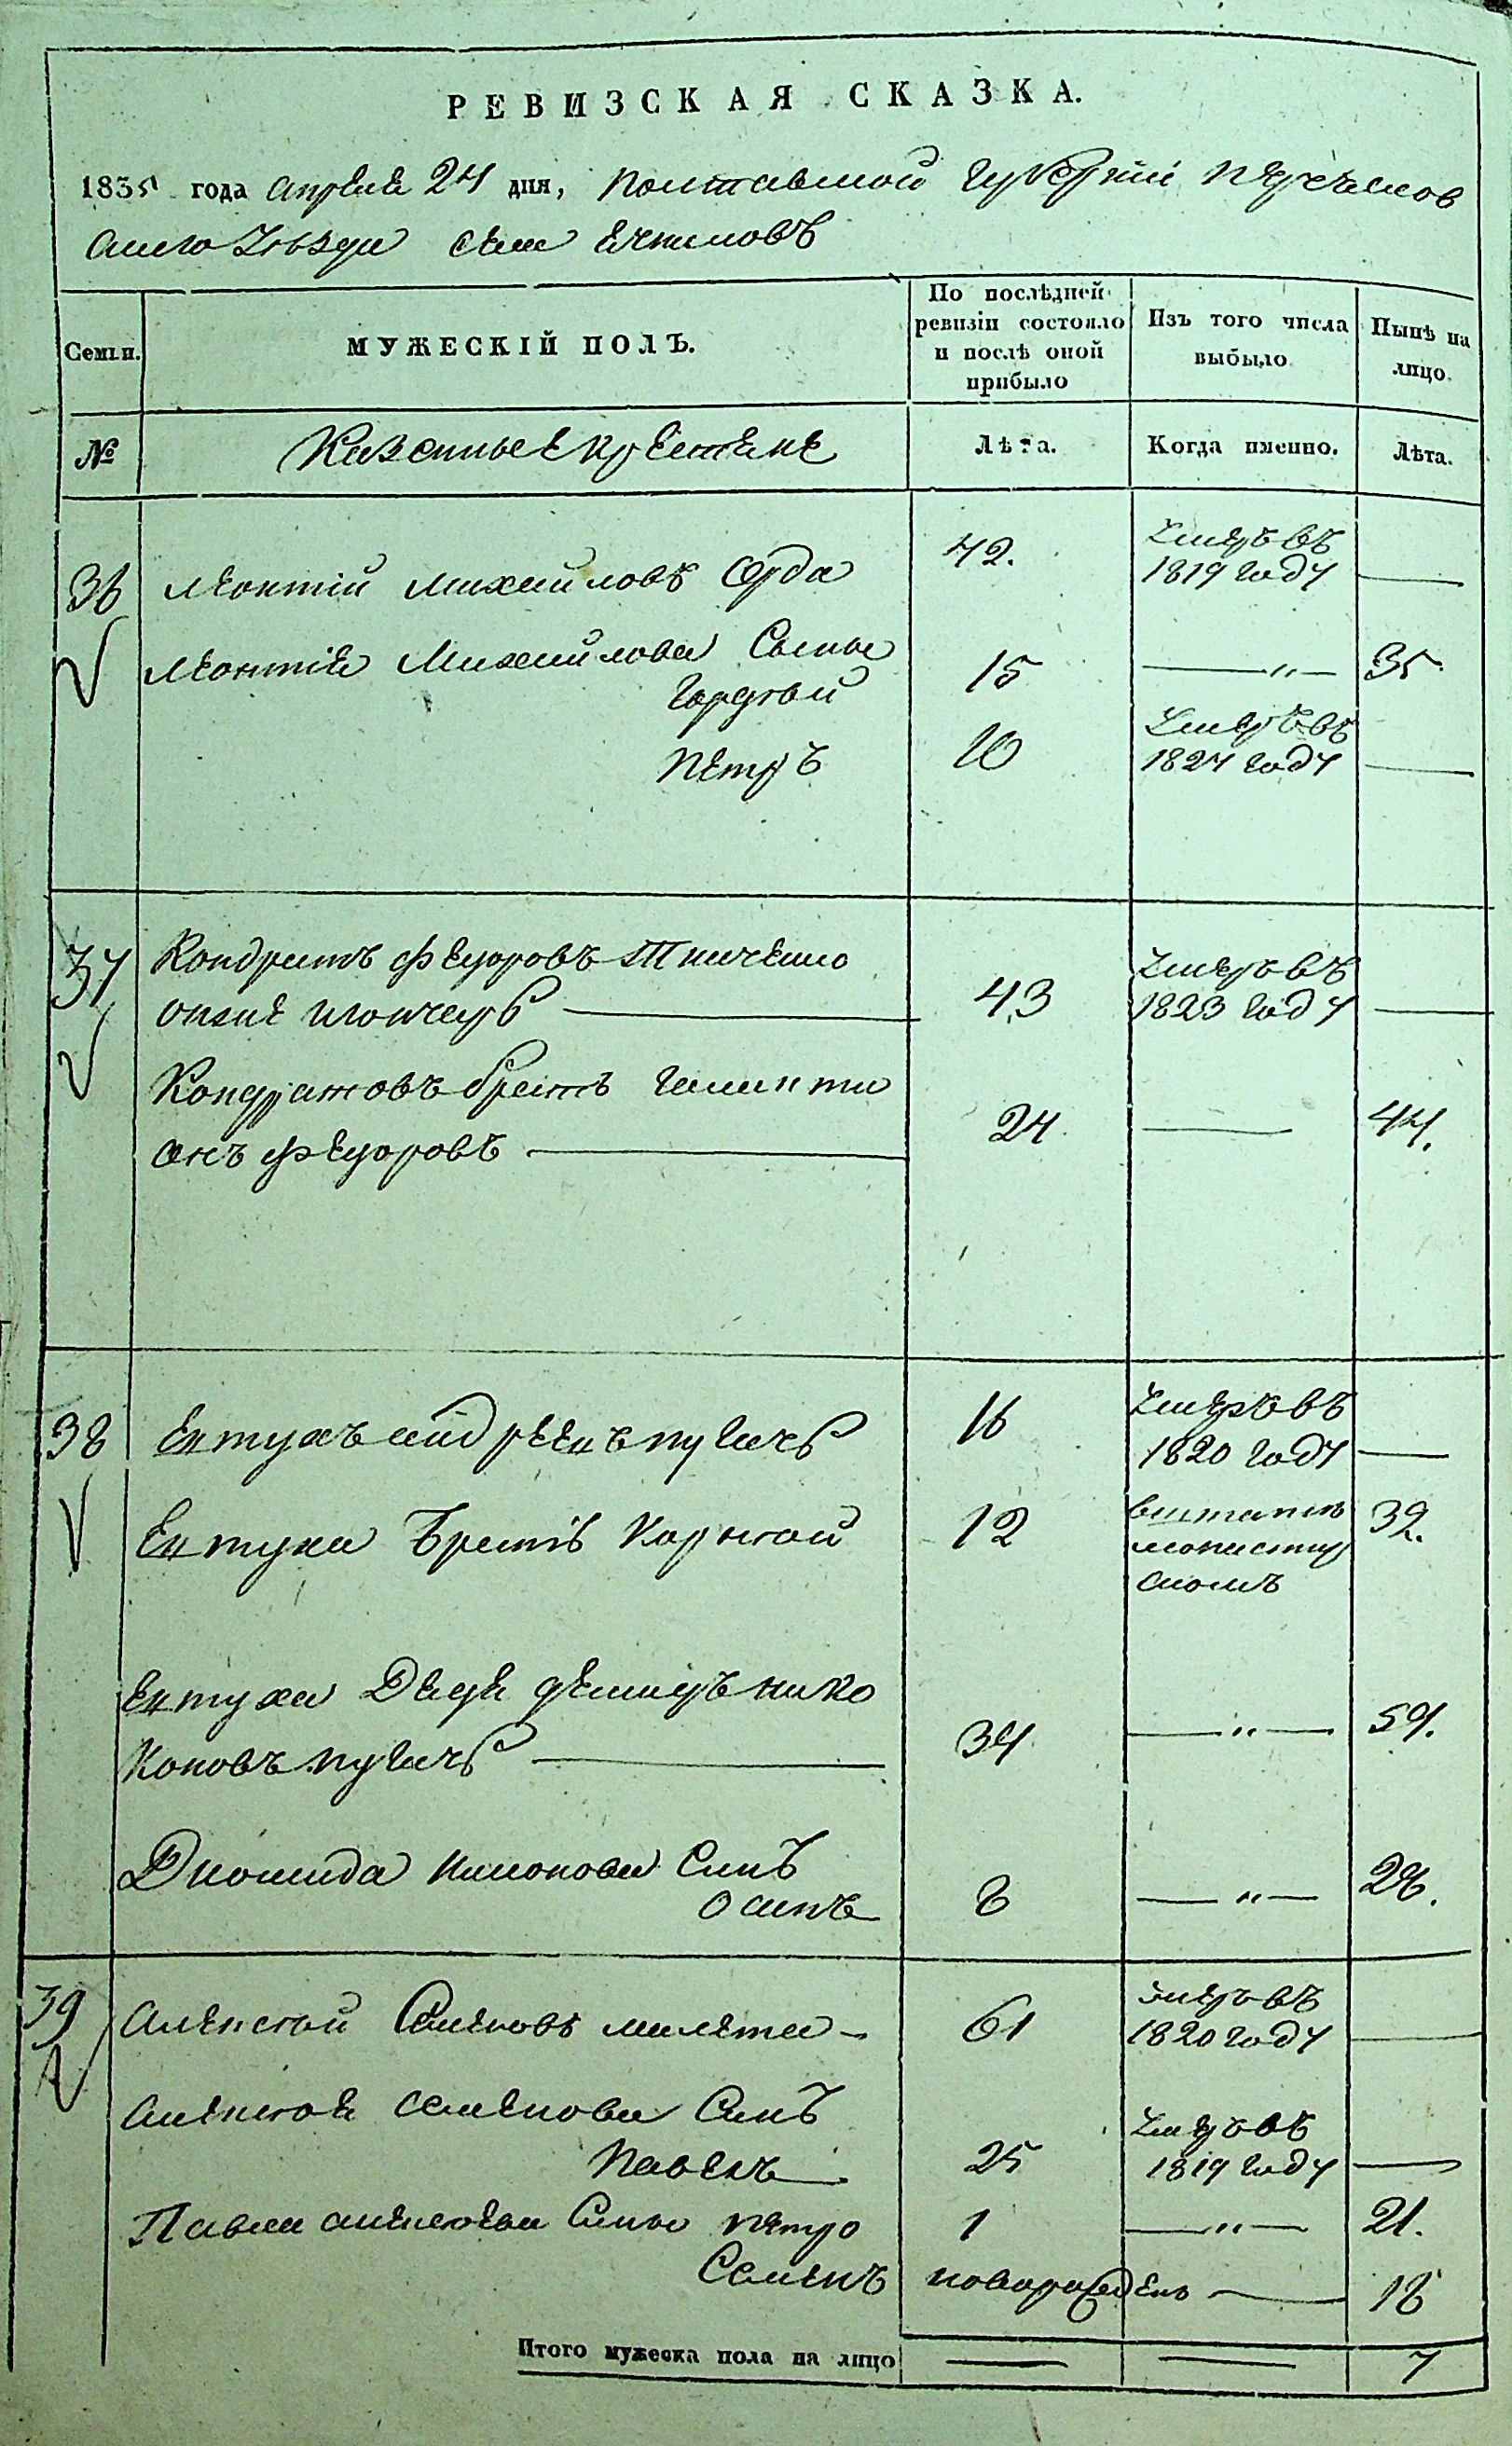 РЕВИЗСКАЯ СКАЗКА.
1835 года апреля 24 дня, Полтавской губернии
уезда села
Семьи.
МУЖЕСКІЙ ПОЛЪ.
По послѣдней ревизіи состояло и послѣ оной прибыло
Изъ того числа выбыло
Нынѣ на лицо.
№
Казенные крестяне
Лѣта.
Когда именно.
Лѣта.
36 Леонтій Михайловъ Орда 42. умеръ въ
1819 году —
Леонтія Михайлова Сыны
Гордѣй 15 — „ — 35
Петръ 10 умеръ въ
1824 году —
37 Кондратъ Федоровъ
онже Гончаръ — 43 умеръ въ
1823 году —
Кондратовъ братъ
Федоровъ — 24 — 44.
38 Евтухъ Андреевъ Пугачъ 16 умеръ въ
1820 году —
Евтуха братъ Корнѣй 12 32.
Евтуха Дядя Демидъ Нико
новъ Пугачъ — 34 — „ — 54.
Диомида Никонова Синъ
Осипъ 8 — „ — 28.
39 Алексѣй Семеновъ 61 умеръ въ
1820 году —
Алексѣя Семенова Синъ
Павелъ 25 умеръ въ
1819 году —
Павла Алексѣева Сины Петро 1 — „ — 21.
Семенъ новорожденъ — 18
Итого мужеска пола на лицо — — 7